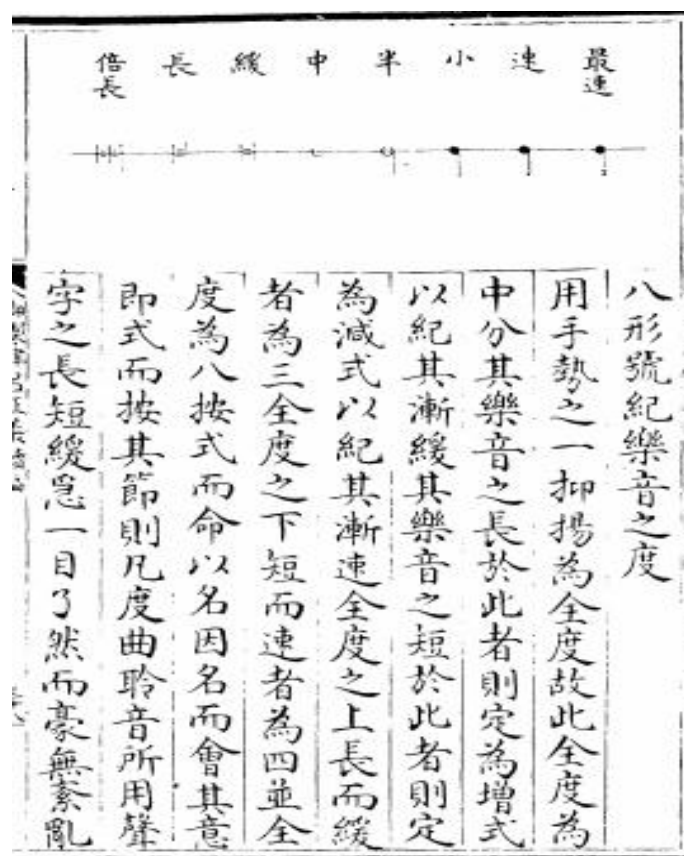 最速 速 小 半 中 緩 長 倍長
八形號紀樂音之度
用手勢之一抑揚為全度故此全度為
中分其樂音之長於此者則定為增式
以紀其漸緩其樂音之短於此者則定
為減式以紀其漸速全度之上長而緩
者為三全度之下短而速者為四並全
度為八按式而命以名因名而會其意
即式而按其節則凡度曲聆音所用聲
字之長短緩急一目了然而豪無紊亂